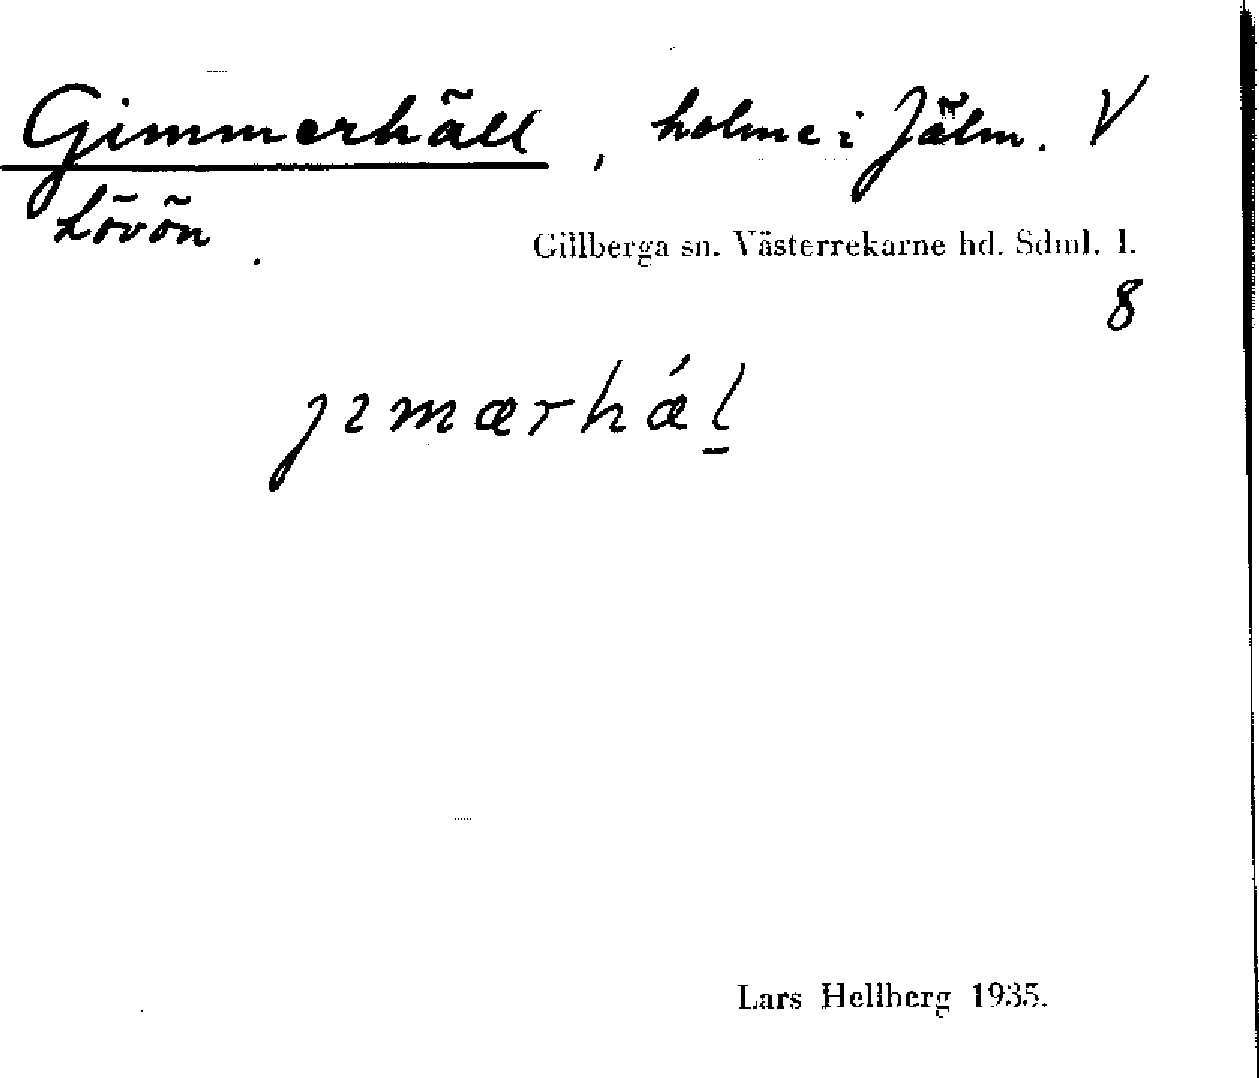 Gimmerhäll, holme i Jälm. V
Lövön.
Gillberga sn. Västerrekarne hd. Sdml. l.
8
jımærhǽl̠
Lars Hellberg 1935.